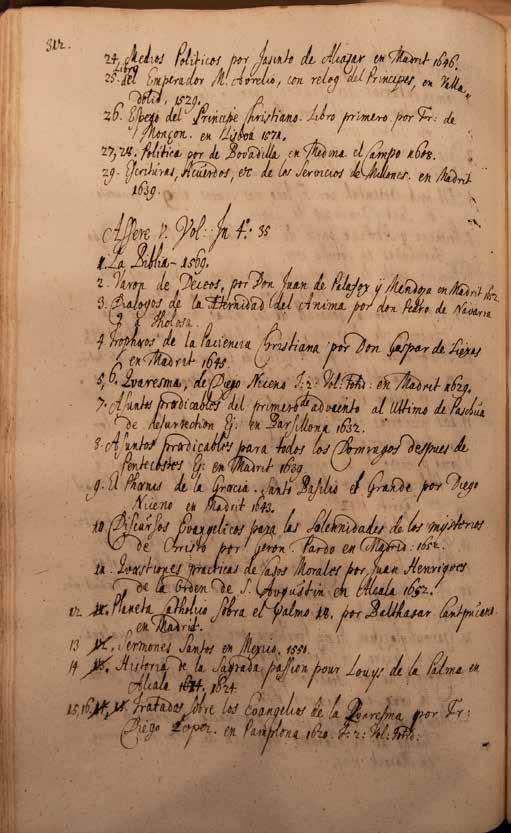 312.
24, Medios Politicos por Jasinto de Alcaẓar en Madrit 1646.
Libro
25. del Emperador M. Aurelio, con relog del Principes, en Valla-
dolid, 1529.
26. Espeẓo del Principe Christiano. Libro primero. por Fr: de
Monçon. en Lisboa 1571.
27, 28. Politica por de Bovadilla en Medina el Campo 1608.
29. Escrituras, Acuerdos, etc de los Servicios de Millones. en Madrit
1639.
Assere V. Vol: In 4º: 35
1. La Biblia - 1569.
2. Varon de Deceos, por Don Juan de Palafox ÿ Mendoza en Madrit
3. Dialogos de la Eternidad del Anima por don Pedro de Navarra
à Tholosa.
4 Trophæos de la Paciencia Christiana por Don Gaspar de
en Madrit 1645.
5, 6. Qvaresma, de Diego Niceno T: 2: Vol: Totid: en Madrit 1629.
7. Asuntos prædicables del primero de advento al Ultimo de Paschua
de Resurrection Ej: en Barsillona 1632.
8. Asuntos prædicables para todos los Domingos despues de
Pentecostes Ej: en Madrit 1639
9. El Phænis de la Grecia. Santo Basilio el Grande por Diego
Niceno en Madrit 1643.
10 Discursos Evangelicos para las Solennidades de los mysterios
de Christo por Geron. Pardo en Madrid: 1652.
11. Qvæstiones practicas de Casos Morales por Juan Henriques
de la Orden de S. Augustin en Alcala 1652.
12 Planeta Catholico Sobra el Psalmo 18. por Balthasar
en Madrit.
13 Sermones Santos en Mexico. 1550.
14 Historia de la Sagrada passion pour Louys de la Palma en
Alcala 1624.
15, 16 Tratados Sobre los Evangelios de la Qvaresma por Fr:
Diego Lopez. en Pamplona 1620. T: 2: Vol: Totid: